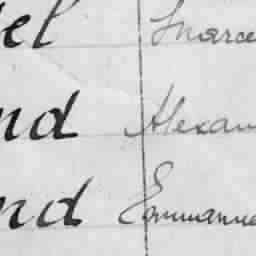 el Marce
nd Alexan
nd Emmanue